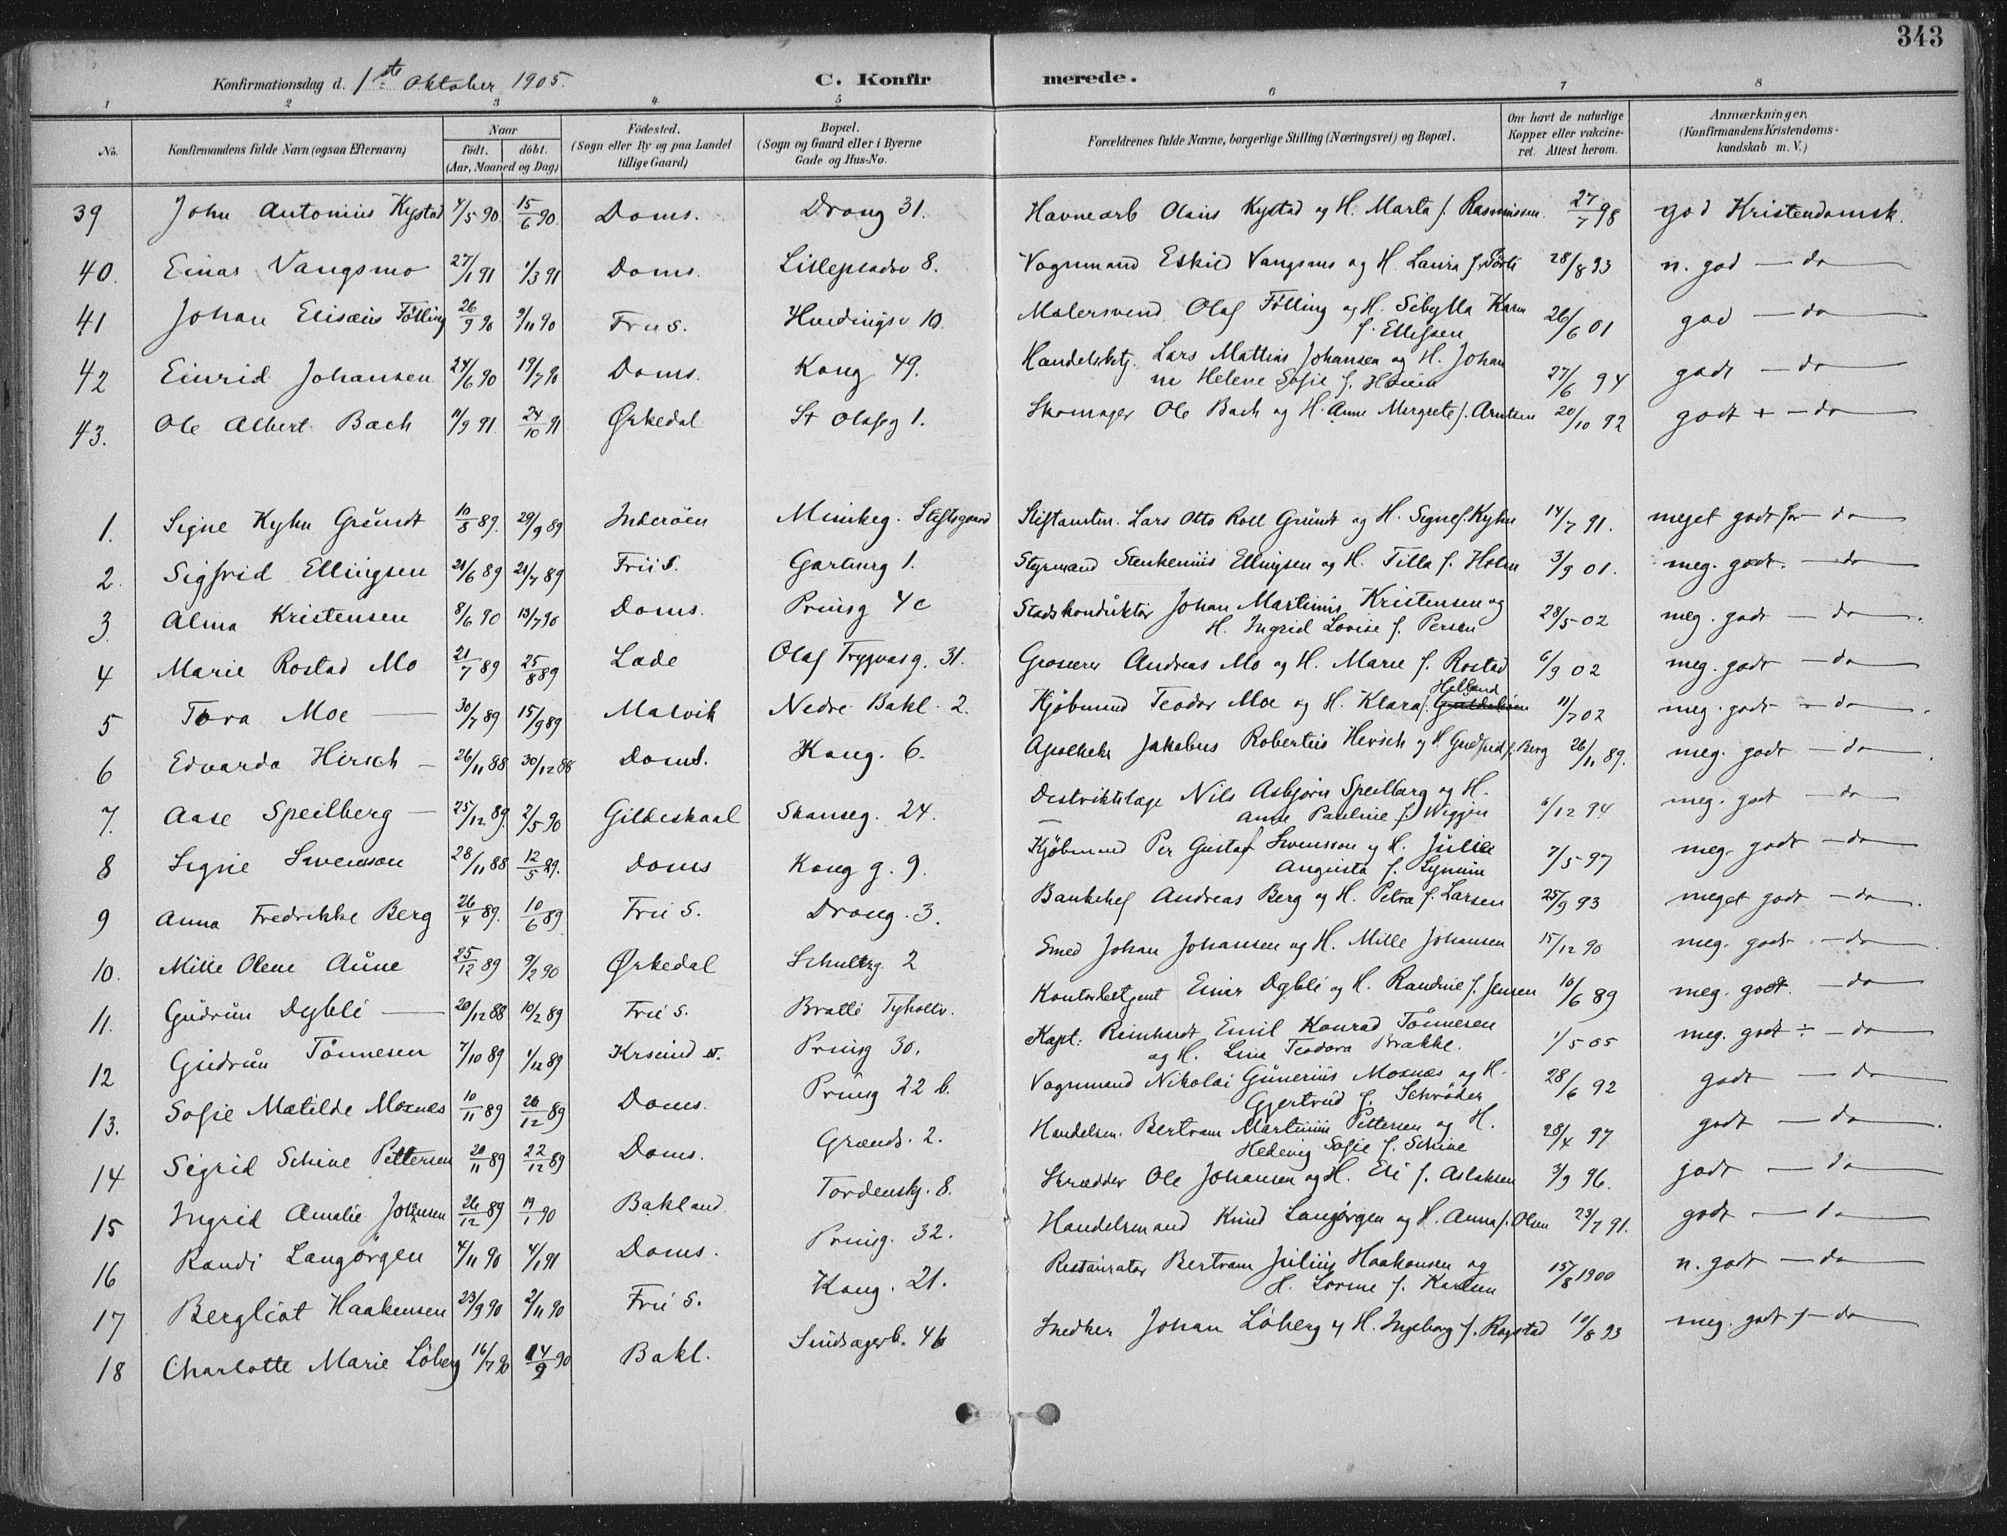 343
Konfirmationsdag d. 1ste Oktober 1905.
C. Konfirmerede.
1 2 3 4 5 6 7 8
No. Konfirmandens fulde Navn (ogsaa Efternavn) Naar født. døbt. (Aar, Maaned og Dag) Fødested. (Sogn eller By og paa Landet tillige Gaard) Bopæl. (Sogn og Gaard eller i Byerne Gade og Hus-No. Forældrenes fulde Navne, borgerlige Stilling (Næringsvei) og Bopæl. Om havt de naturlige Kopper eller vakcineret. Attest herom. Anmærkninger, (Konfirmandens Kristendomskundskab m. V.)
39 John Antonius Kystad 4/5 90 15/6 90 Doms. Drong 31. Havnearb Olaus Kystad og H. Marta f. Rasmussen 27/7 98 god Kristendomsk.
40. Einar Vangsmo 27/1 91 1/3 91 Doms. 8. Vognmand Eskild Vangsmo og H. Laura f. 28/8 93 n. god — do
41 Johan Elisæus Følling 26/9 90 9/11 90 Frue S. 10. Malersvend Olaf Følling og H. Sibylla Karn f. Ellefsen 26/6 01 god — do
42 Einrid Johansen 24/6 90 19/7 90 Doms. Kong 49. Handelsbetj. Lars Mattias Johansen og H. Johanne Helene Sofie f. 27/6 94 godt — do
43. Ole Albert Bach 11/9 91 24/10 91 Ørkedal St Olafsg 1. Skomager Ole Bach og H. Anne Margrete f. Arntsen 20/10 92 godt + — do
1. Signe Kyhn Gründt 10/8 89. 29/9 89 Inderøen Munkeg. Stiftsgaard Stiftamtm. Lars Otto Roll Gründt og H. Signe f. Kyhn 14/7 91. meget godt for — do
2. Sigfrid Ellingsen 21/6 89 21/7 89 Frue S. 1. Styrmand Ellingsen og H. Tilla f. Holm 3/9 01. meg. godt. — do
3. Alma Kristensen 8/6 90 13/7 90 Doms. Prinsg 4c Stadskonduktør Johan Martinus Kristensen og H. Ingrid Lovise f. Persen 28/5 02 meg. godt — do
4 Marie Rostad Mo 21/7 89 25/8 89 Lade Olaf Trygvasg. 31. Grosserer Andreas Mo og H. Marie f. Rostad 6/9 02 meg. godt — do
5 Tora Moe — 30/7 89 15/9 89 Malvik Nedre Bakl. 2. Kjøbmand Teodor Moe og H. Klara f. Helland 11/7 02 meg. godt — do
6 Edvarda Hirsch — 26/11 88 30/12 88 Doms. Kong. 6. Apotheker Jakobus Robertus Hirsch og H. Gudfrid f. Berg 26/11 89. meg. godt — do
7. Aase Speilberg — 25/12 89. 2/5 90 Gildeskaal Skanseg. 24. Destriktslæge Nils Asbjørn Speilberg og H. Anne Pauline f. Wiggen 6/12 94 meg. godt — do
8 Signe Svensson 28/11 88 12/5 89. Doms Kong g. 9. Kjøbmand Per Gustaf Svensson og H. Julie Augusta f. 7/5 97 meg. godt — do
9 Anna Fredrikke Berg 26/4 89. 10/6 89 Frue S. Drong. 3. Bankchef Andreas Berg og H. Petra f. Larsen 25/9 93 meget godt — do.
10. Mille Olene Aune 25/12 89 9/2 90 Ørkedal Schultzg. 2 Smed Johan Johansen og H. Mille Johansen 15/12 90 meg. godt. — do
11. Gudrun Dybli — 20/12 88 10/2 89 Frue S. Bratli Tyholtv. Kontorbetjent Einar Dybli og H. Randine f. Jensen 10/6 89 meg. godt. — do
12 Gudrun Tønnesen 7/10 89 1/12 89 Krsund N. Prinsg 30. Kapt. Reinhardt Emil Konrad Tønnesen og H. Lina Teodora Brække. 1/5 05 meg. godt ÷ — do
13. Sofie Matilde Moxnes 10/11 89 26/12 89 Doms. Prinsg 22 b. Vognmand Nikolai Gunerius Moxnæs og H. Gjertrud f. Schrøder 28/6 92 godt — do
14 Sigrid Schive Pettersen 20/11 89 22/12 89 Doms. Grænds. 2. Handelsm. Bertram Martinius Pettersen og H. Hedevig Sofie f. Schive 28/4 97 godt — do
15 Ingrid Amalie Johansen 26/12 89 19/1 90 Bakland Tordenskj. 8. Skrædder Ole Johansen og H. Eli f. Aslaksen 3/9 96. godt — do
16 Randi Langørgen 4/11 90 4/1 91 Doms. Prinsg. 32. Handelsmand Knud Langørgen og H. Anna f. Olsen 23/7 91. godt — do
17 Bergliot Haakensen 23/9 90 2/11 90 Frue S. Kong. 21. Restauratør Bertram Julius Haakonsen og H. Lovine f. Karlsen 15/8 1900 n. godt — do
18 Charlotte Marie Løberg 16/7 90 14/9 90 Bakl. 46 Snedker Johan Løberg og H. Ingeborg f. Rogstad 10/8 93 meg. godt — do